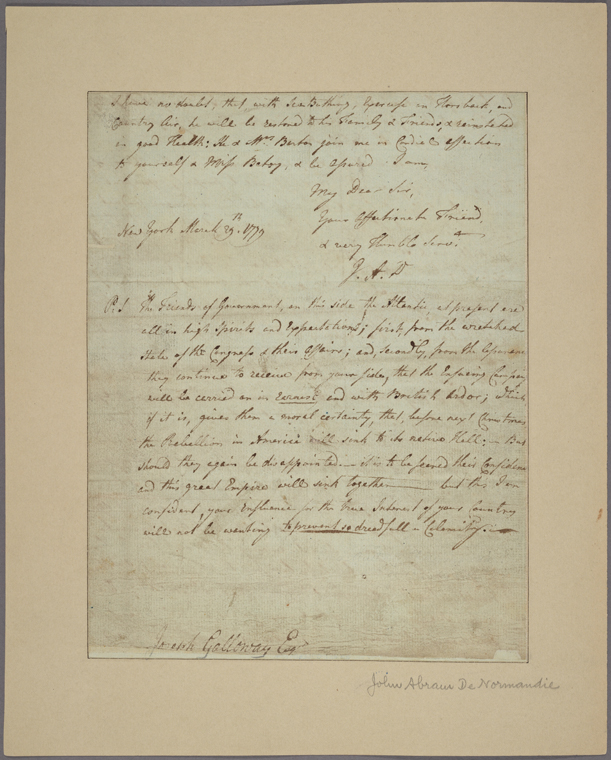 I have no doubt, that with Sea Bathing, Exercise on Horseback, and
Country Air, he will be restored to his Family & Friends, & reinstated
in good Health: He & Mrs. Barton join me in Cordial affection
to yourself & Miss Betsy, & be assured I am,
My Dear Sir,
Your Affectionate Friend,
& very Humble Servt.
New York March 29th. 1779
J. A. D
P.S. The Friends of Government, on this side the Atlantic, at present are
all in high Spirits and Expectations; first, from the wretched
State of the Congress & their Affairs; and, secondly, from the Assurance
they continue to receive from your side, that the Ensuing Campaign
will be carried on in Earnest and with British Ardor; which
if it is, gives them a moral certainty, that, before next Christmas
the Rebellion in America will sink to its native Hell:— But
should they again be disappointed—it is to be feared their Confidence
and this great Empire will sink together— but this I am
confident, your Influence for the true Interest of your Country
will not be wanting to prevent so dreadfull a Calamity.—
Joseph Galloway Esqr
John Abram De Normandie